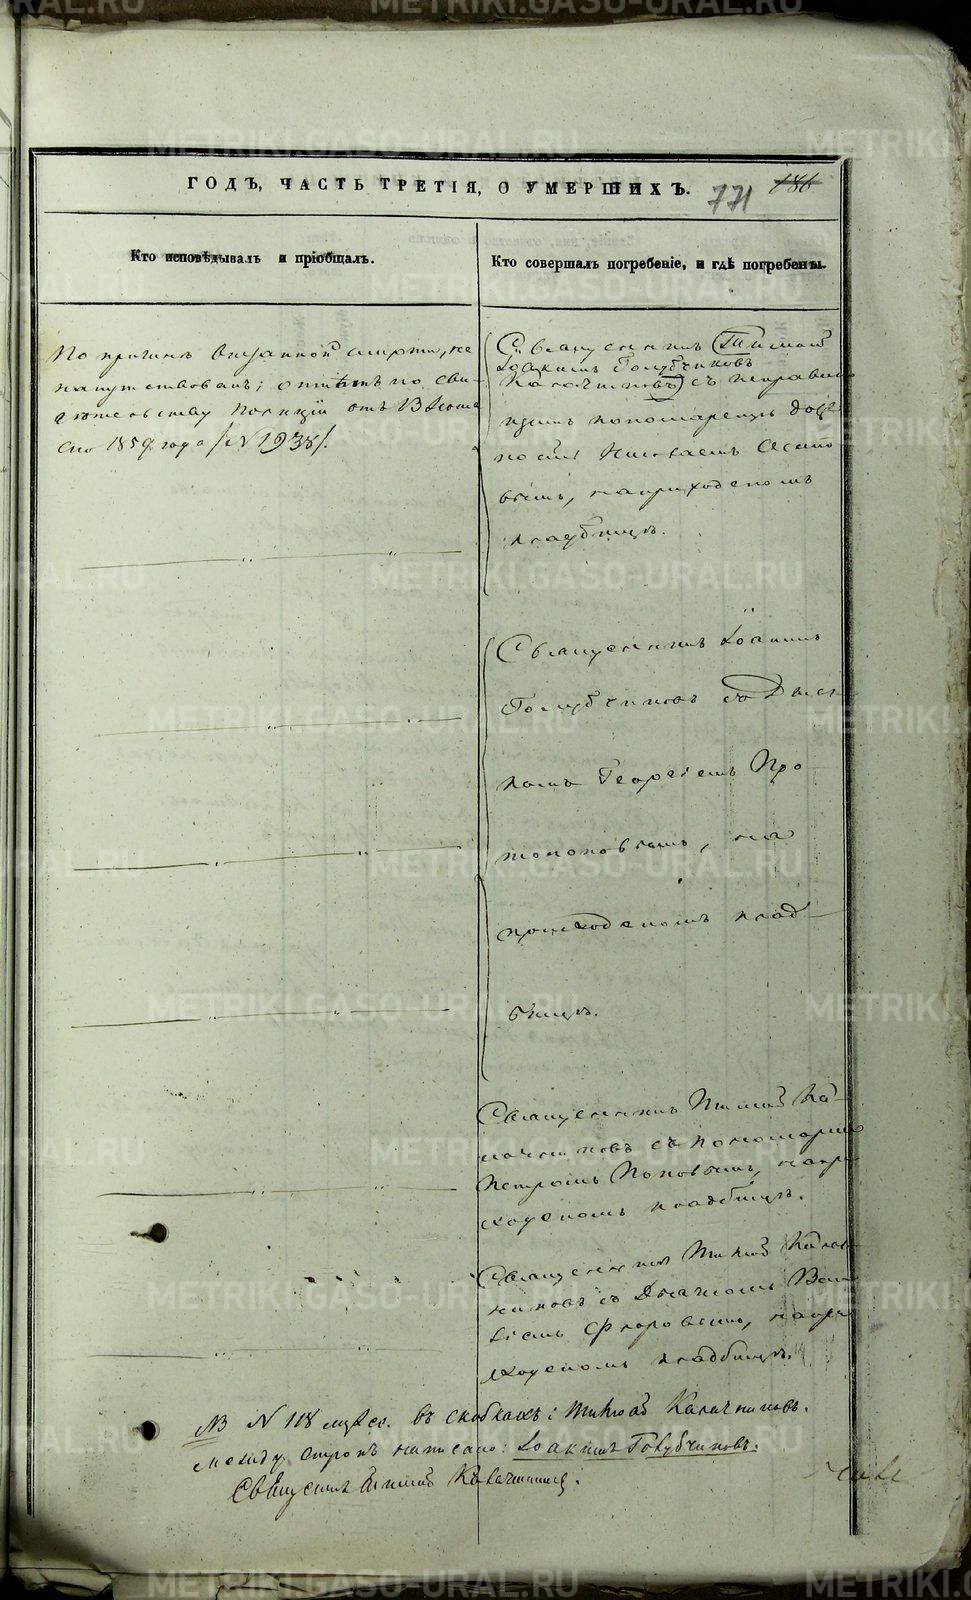 ГОДЪ, ЧАСТЬ ТРЕТІЯ, О УМЕРШИХЪ.
771
186
Кто исповѣдывалъ и пріобщалъ.
Кто совершалъ погребеніе, и гдѣ погребены.
По причинѣ внезапной смерти, не
напутствованъ; отпѣтъ по сви-
дѣтельству Полиціи отъ 13 Іюня
сего 1859 года /№ 1938/.
Священникъ (Тихонъ
Іоакимъ Голубчиковъ
Калачниковъ) съ исправляю
щимъ пономарскую долж
ность Николаемъ Осипо
вымъ, на приходскомъ
кладбищѣ.
Священникъ Іоакимъ
Голубчиковъ съ Дьяч
комъ Георгіемъ Про
топоповымъ, на
приходскомъ клад-
бищѣ.
Священникъ Тихонъ Ка-
лачниковъ съ Пономаремъ
Петромъ Поповымъ, на при
ходскомъ кладбищѣ.
Священникъ Тихонъ Калач
никовъ съ Дьячкомъ
Флоровымъ, на при
ходскомъ кладбищѣ.
NB № 118 въ скобкахъ: Тихонъ Калачниковъ.
между строкъ написано: Іоакимъ Голубчиковъ.
Священникъ Тихонъ Калачниковъ.
METRIKI.GASO-URAL.RU